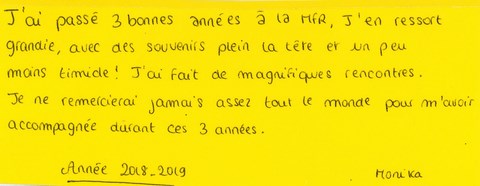 J'ai passé 3 bonnes années à la MFR, J'en ressort
grandie, avec des souvenirs plein la tête et un peu
moins timide! J'ai fait de magnifiques rencontres.
Je ne remercierai jamais assez tout le monde pour m'avoir
accompagnée durant ces 3 années.
Année 2018-2019 Monika